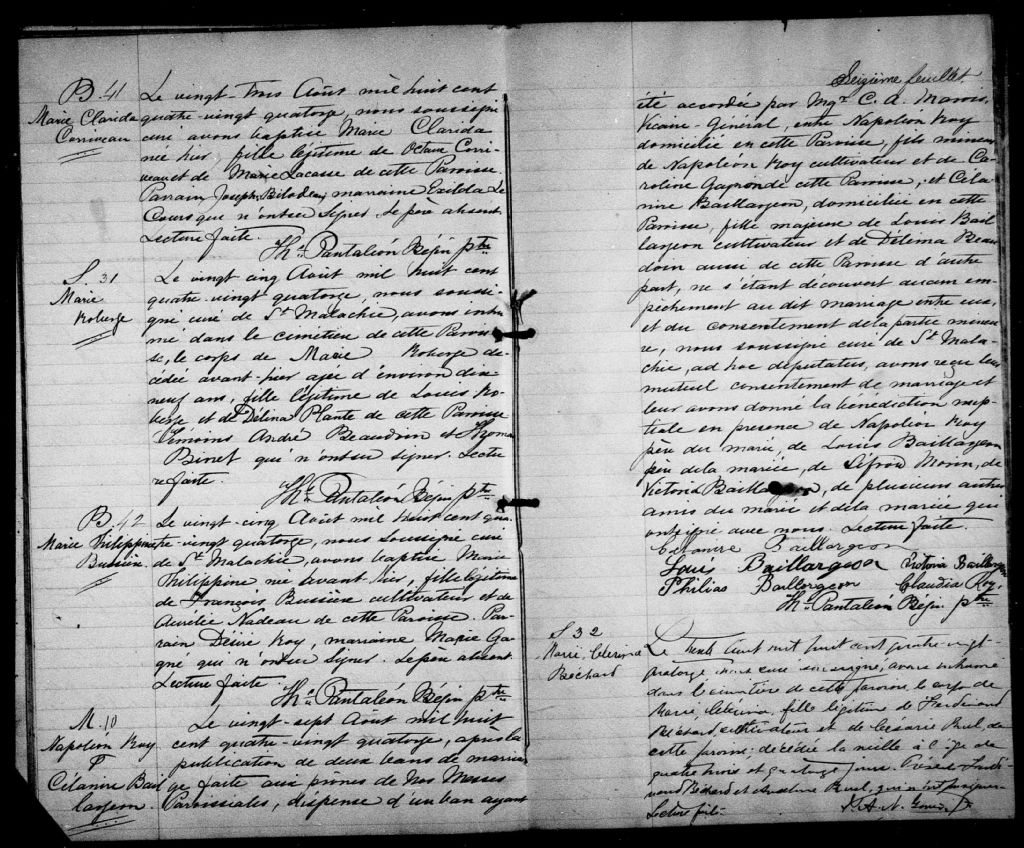 B. 41
Marie Clarida
Corriveau
Le vingt-trois Août mil huit cent
quatre-vingt quatorze, nous soussigné
curé avons baptisé Marie Clarida
née hier, fille légitime de Octave Corri-
veau et de Marie Lacasse de cette Paroisse.
Parrain Joseph Bilodeau, marraine Exilda Le
Cours qui n'ont su signer. Le père absent.
Lecture faite.
Th. Pantaléon Bégin ptre
S. 31
Marie
Roberge
Le vingt cinq Août mil huit cent
quatre-vingt quatorze, nous soussi-
gné curé de St Malachie, avons inhu-
mé dans le cimetière de cette Parois-
se, le corps de Marie Roberge dé-
cédée avant-hier agée d'environ dix
neuf ans, fille légitime de Louis Ro-
berge et de Délina Plante de cette Paroisse
Témoins André Beaudoin et Thomas
Binet qui n'ont su signer. Lectu
re faite.
Th. Pantaléon Bégin ptre
B. 42
Marie Philippine
Bussière
Le vingt-cinq Août mil huit cent qua-
tre-vingt quatorze, nous soussigné curé
de St Malachie, avons baptisé Marie
Philippine née avant hier, fille légitime
de François Bussière cultivateur et de
Aurélie Nadeau de cette Paroisse. Par-
rain Désiré Roy, marraine Marie Ga-
gné qui n'ont su signer. Le père absent.
Lecture faite.
Th. Pantaléon Bégin ptre
M. 10
Napoléon Roy
&
Célanire Bail
largeon.
Le vingt-sept Août mil huit
cent quatre-vingt quatorze, après la
publication de deux bans de maria
ge faite aux prônes de Nos Messes
Paroissiales, dispense d'un ban ayant
Seizième feuillet
été accordée par Mgr C. A. Marois,
Vicaire-Général, entre Napoléon Roy
domicilié en cette Paroisse, fils mineur
de Napoléon Roy cultivateur et de Ca-
roline Gagnon de cette Paroisse, et Céla
nire Baillargeon, domiciliée en cette
Paroisse, fille majeure de Louis Bail
largeon cultivateur et de Délima Beau
doin aussi de cette Paroisse d'autre
part, ne s'étant découvert aucun em-
pêchement au dit mariage entre eux,
et du consentement de la partie mineu
re, nous soussigné curé de St Mala-
chie, ad hoc deputatus, avons reçu leur
mutuel consentement de mariage et
leur avons donné la bénédiction nup-
tiale en présence de Napoléon Roy
père du marié, de Louis Baillargeon
père de la mariée, de Morin, de
Victoria Baillargeon, de plusieurs autres
amis du marié et de la mariée qui
ont signé avec nous. Lecture faite.
Célanire Baillargeon
Louis Baillargeon Victoria Baillargeon
Philias Baillargeon Claudia Roy.
Th. Pantaléon Bégin ptre
S 32
Marie,
Béchard
Le trente Août mil huit cent quatre vingt-
quatorze, nous curé soussigné, avons inhumé
dans le cimetière de cette paroisse, le corps de
Marie, fille légitime de Ferdinand
Béchard, cultivateur et de Césarie Ruel, de
cette paroisse; décédée la veille à l'âge de
quatre mois et jours. Présents Ferdi-
nand Béchard et Ruel, qui n'ont su signer.
Lecture faite.